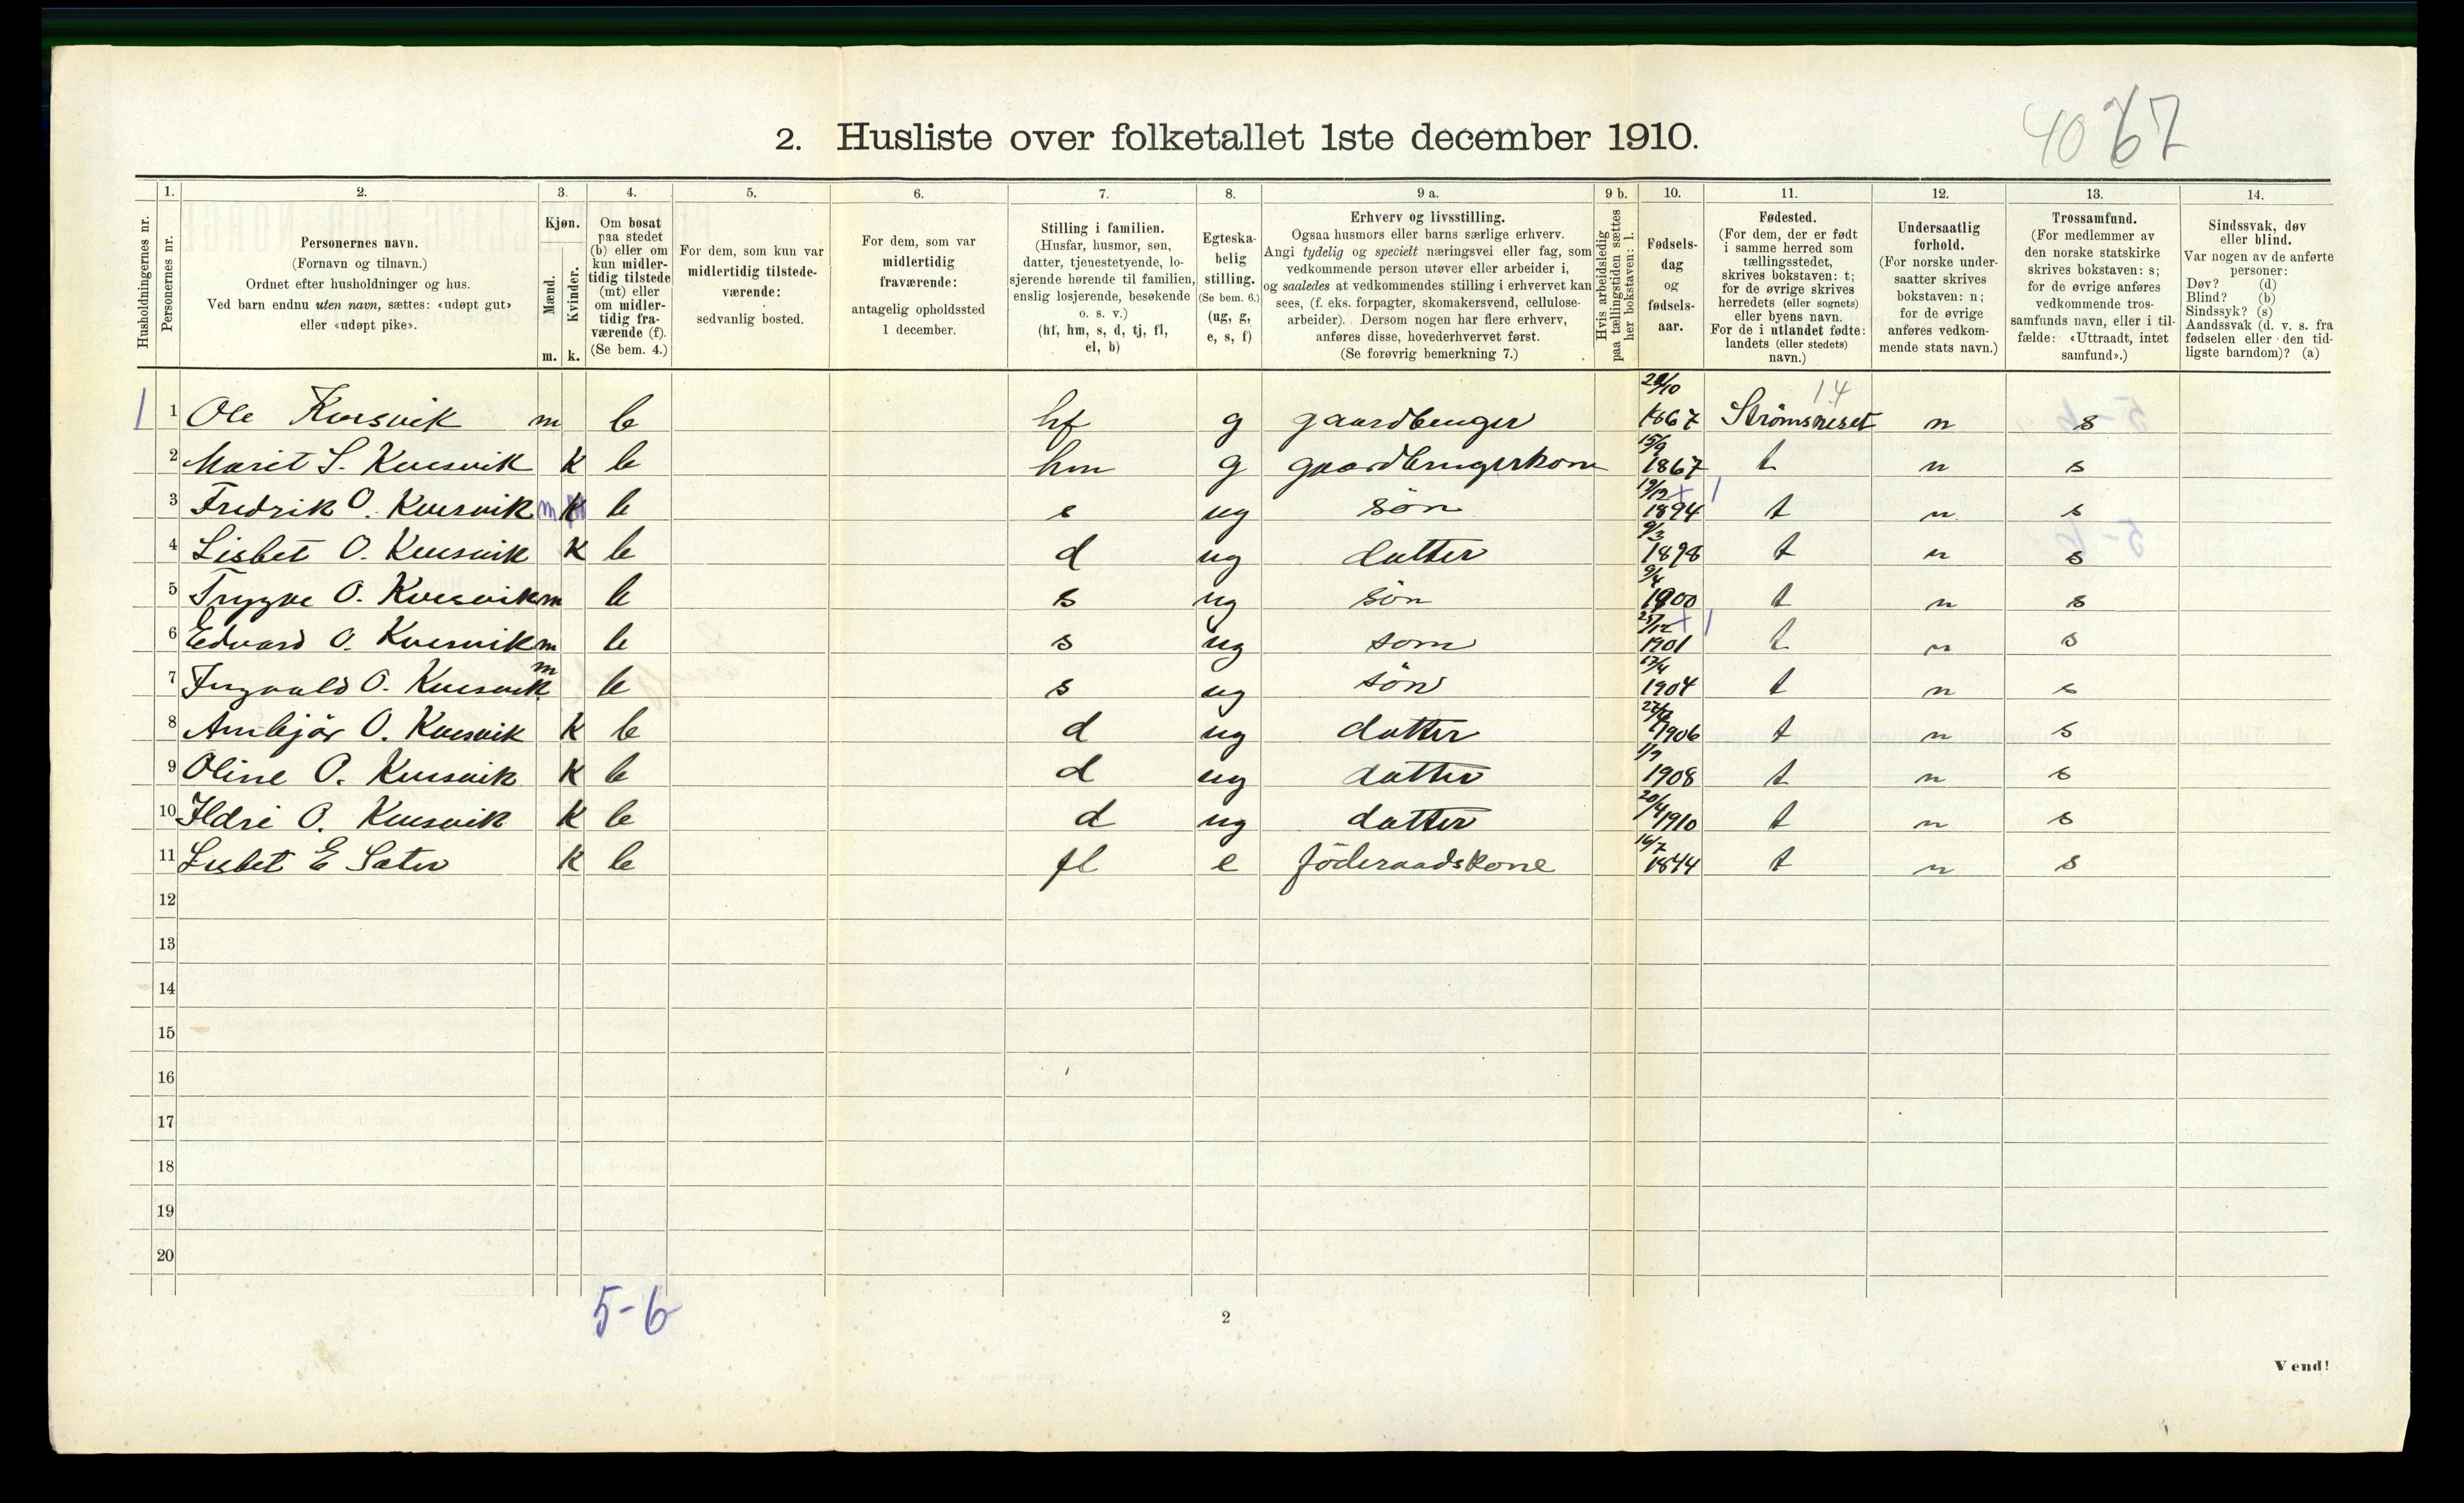 40 67
2. Husliste over folketallet 1ste december 1910.
Husholdningernes nr.
1.
Personernes nr.
2.
Personernes navn.
(Fornavn og tilnavn.)
Ordnet efter husholdninger og hus.
Ved barn endnu uten navn, sættes: «udøpt gut»
eller «udøpt pike».
3.
Kjøn.
Mænd.
Kvinder.
m. k.
4.
Om bosat
paa stedet
(b) eller om
kun midler-
tidig tilstede
(mt) eller
om midler-
tidig fra-
værende (f).
(Se bem. 4.)
5.
For dem, som kun var
midlertidig tilstede-
værende:
sedvanlig bosted.
6.
For dem, som var
midlertidig
fraværende:
antagelig opholdssted
1 december.
7.
Stilling i familien.
(Husfar, husmor, søn,
datter, tjenestetyende, lo-
sjerende hørende til familien,
enslig losjerende, besøkende
o. s. v.)
(hf, hm, s, d, tj, fl,
el, b)
8.
Egteska-
belig
stilling.
(Se bem. 6.)
(ug, g,
e, s, f)
9 a.
Erhverv og livsstilling.
Ogsaa husmors eller barns særlige erhverv.
Angi tydelig og specielt næringsvei eller fag, som
vedkommende person utøver eller arbeider i,
og saaledes at vedkommendes stilling i erhvervet kan
sees, (f. eks. forpagter, skomakersvend, cellulose-
arbeider). Dersom nogen har flere erhverv,
anføres disse, hovederhvervet først.
(Se forøvrig bemerkning 7.)
9 b.
Hvis arbeidsledig
paa tællingstiden sættes
her bokstaven: l.
10.
Fødsels-
dag
og
fødsels-
aar.
11.
Fødested.
(For dem, der er født
i samme herred som
tællingsstedet,
skrives bokstaven: t;
for de øvrige skrives
herredets (eller sognets)
eller byens navn.
For de i utlandet fødte:
landets (eller stedets)
navn.)
12.
Undersaatlig
forhold.
(For norske under-
saatter skrives
bokstaven: n;
for de øvrige
anføres vedkom-
mende stats navn.)
13.
Trossamfund.
(For medlemmer av
den norske statskirke
skrives bokstaven: s;
for de øvrige anføres
vedkommende tros-
samfunds navn, eller i til-
fælde: «Uttraadt, intet
samfund».)
14.
Sindssvak, døv
eller blind.
Var nogen av de anførte
personer:
Døv? (d)
Blind? (b)
Sindssyk? (s)
Aandssvak (d. v. s. fra
fødselen eller den tid-
ligste barndom)? (a)
1 1 Ole Kvesvik m b hf g gaardbruger 1867 Strömsneset 14 n s
2 Marit S. Kvesvik k b hm g gaardbrugerkone 15/9 1867 t n s
3 Fredrik O. Kvesvik m k b s ug sön 19/12 1894 t n s
4 Lisbet O. Kvesvik k b d ug datter 9/3 1898 t n s
5 Trygve O. Kvesvik m b s ug sön 9/4 1900 t n s
6 Edvard O. Kvesvik m b s ug som 1901 t n s
7 Ingvald O. Kvesvik m b s ug sön 17/4 1904 t n s
8 Anbjör O. Kvesvik k b d ug datter 1906 t n s
9 Oline O. Kvesvik k b d ug datter 1908 t n s
10 Ildri O. Kvesvik k b d ug datter 20/4 1910 t n s
11 Lisbet E Sater k b fl e föderaadskone 16/7 1844 t n s
12
13
14
15
16
17
18
19
20
5-6
2
Vend!